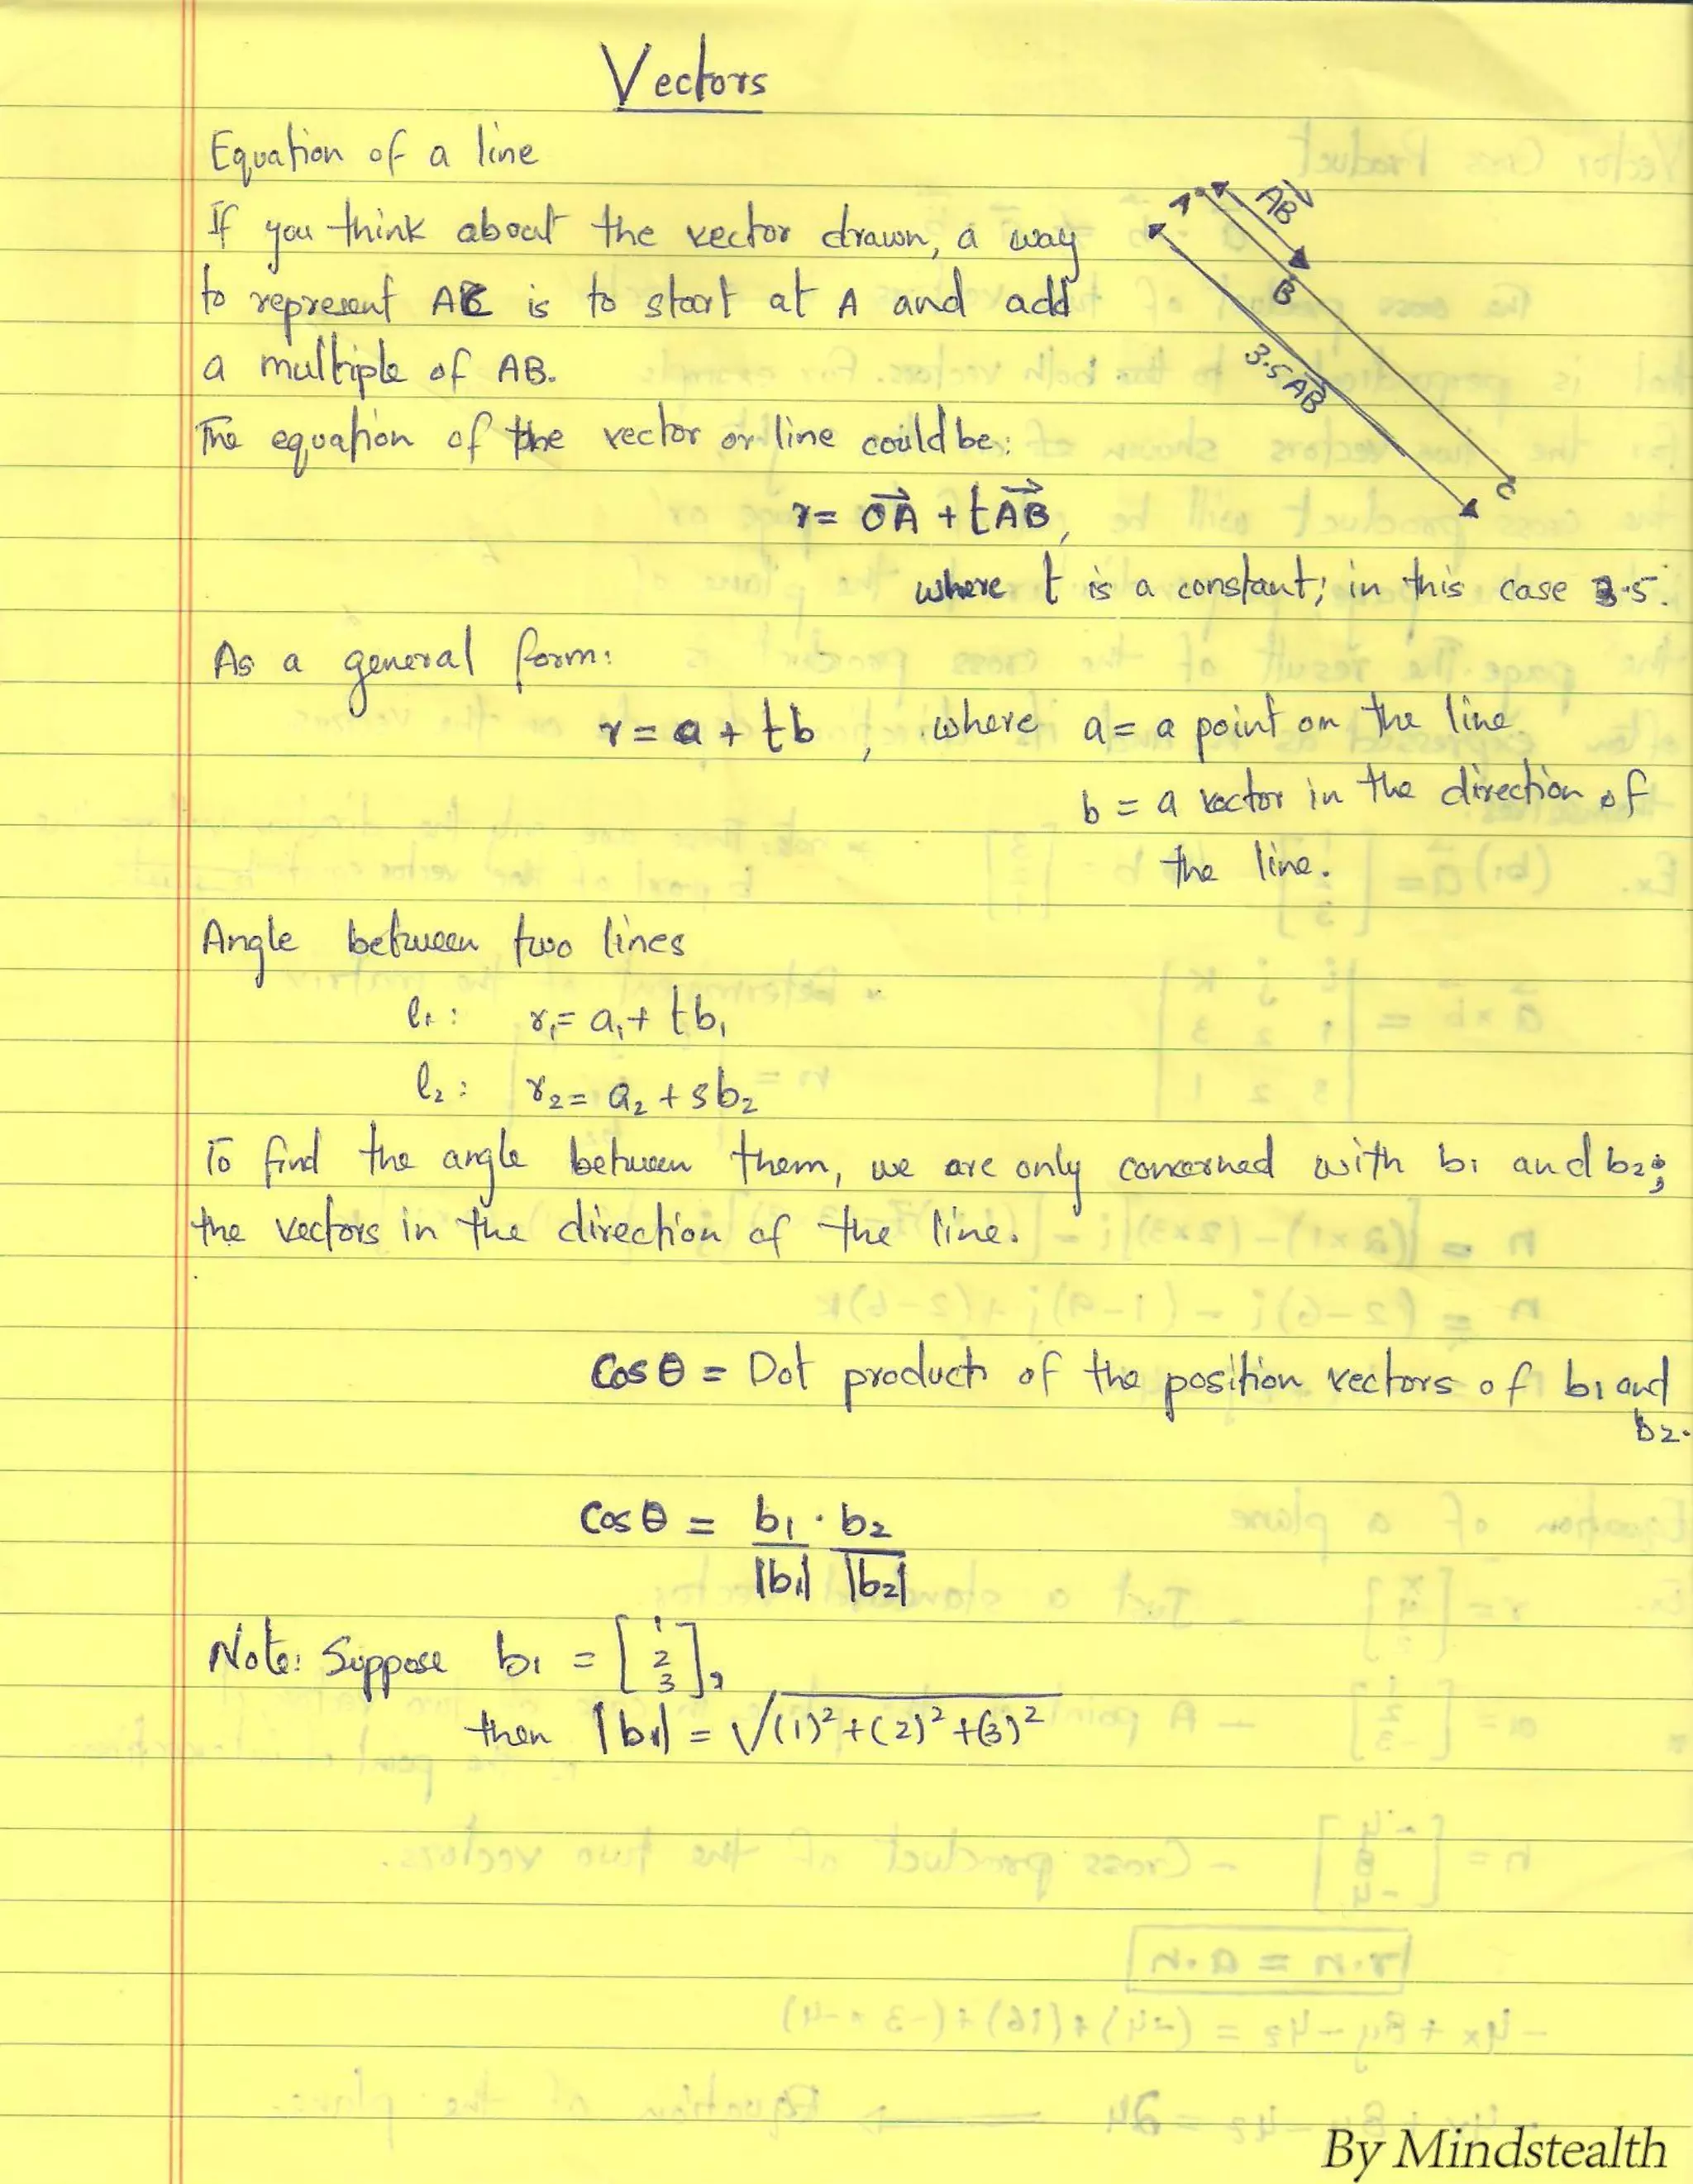 Vectors
Equation of a line
If you think about the vector drawn, a way
to represent AC is to start at A and add
a multiple of AB.
The equation of the vector or line could be:
r = OA + tAB,
where t is a constant; in this case 3.5.
A AB
B
3.5 AB
C
As a general form:
r = a + tb , where a = a point on the line
b = a vector in the direction of
the line.
Angle between two lines
l1 : r1 = a1 + tb1
l2 : r2 = a2 + sb2
To find the angle between them, we are only concerned with b1 and b2;
the vectors in the direction of the line.
Cos θ = Dot product of the position vectors of b1 and
b2.
Cos θ = b1 . b2
|b1| |b2|
Note: Suppose b1 = [1 2 3],
then |b1| = √(1)²+(2)²+(3)²
By Mindstealth